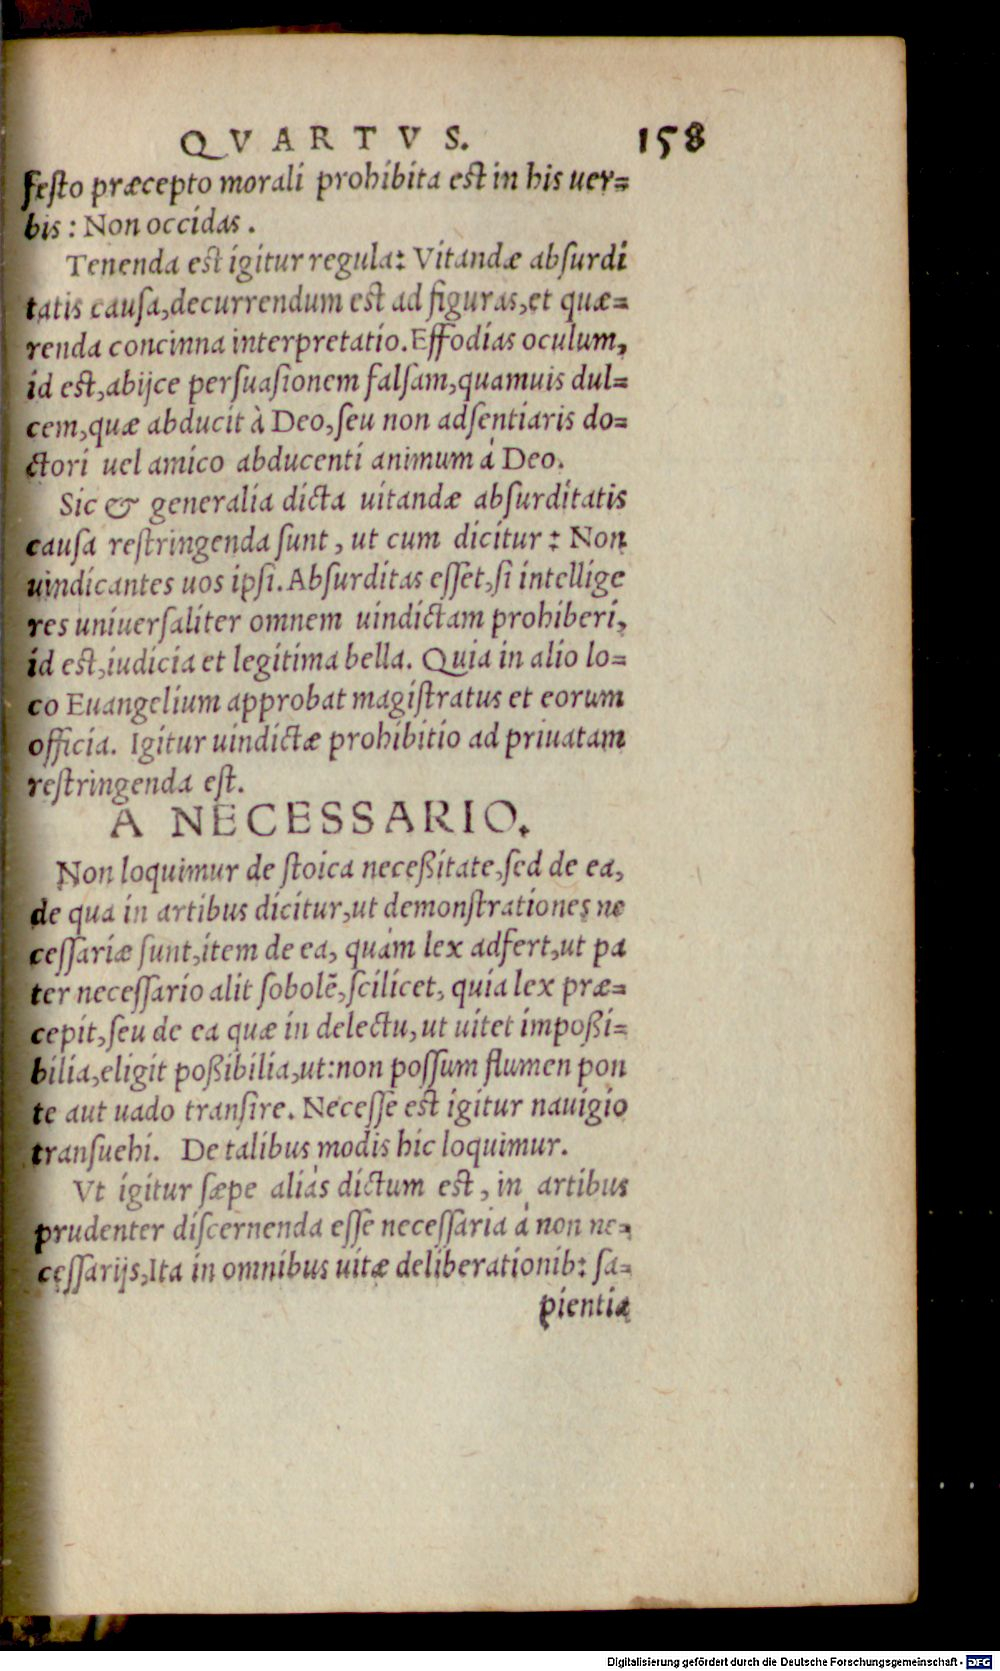 QVARTVS. 158
festo præcepto morali prohibita est in his uer=
bis : Non occidas .
Tenenda est igitur regula: Vitandæ absurdi
tatis causa, decurrendum est ad figuras, et quæ=
renda concinna interpretatio. Effodias oculum,
id est, abijce persuasionem falsam, quamuis dul=
cem, quæ abducit à Deo, seu non adsentiaris do=
ctori uel amico abducenti animum á Deo.
Sic & generalia dicta uitandæ absurditatis
causa restringenda sunt, ut cum dicitur : Non
uindicantes uos ipsi. Absurditas esset, si intellige
res uniuersaliter omnem uindictam prohiberi,
id est, iudicia et legitima bella. Quia in alio lo=
co Euangelium approbat magistratus et eorum
officia. Igitur uindictæ prohibitio ad priuatam
restringenda est.
A NECESSARIO.
Non loquimur de stoica neceßitate, sed de ea,
de qua in artibus dicitur, ut demonstrationes ne
cessariæ sunt, item de ea, quàm lex adfert, ut pa
ter necessario alit sobolē, scilicet, quia lex præ=
cepit, seu de ea quæ in delectu, ut uitet impoßi=
bilia, eligit poßibilia, ut: non possum flumen pon
te aut uado transire. Necesse est igitur nauigio
transuehi. De talibus modis hic loquimur.
Vt igitur sæpe aliàs dictum est, in artibus
prudenter discernenda esse necessaria á non ne=
cessarijs, Ita in omnibus uitæ deliberationib: sa=
pientia
Digitalisierung gefördert durch die Deutsche Forschungsgemeinschaft - DFG